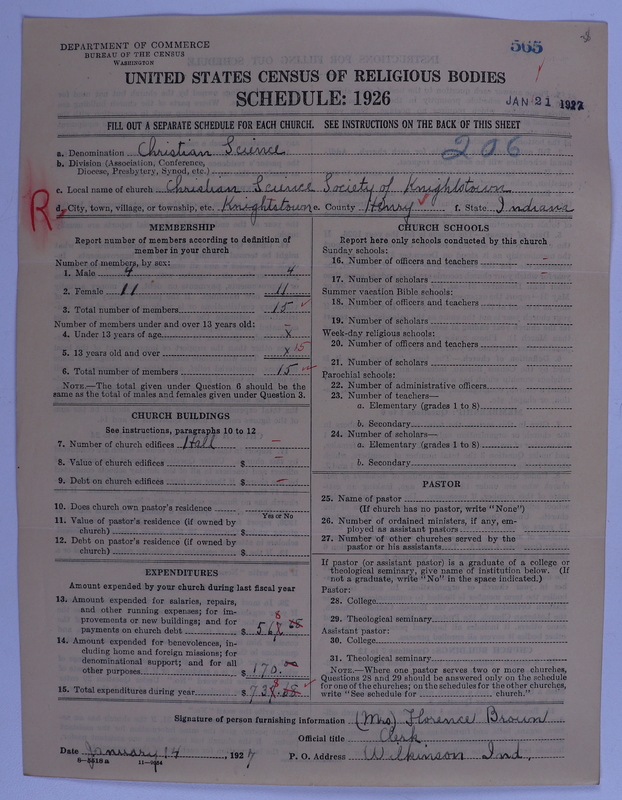 DEPARTMENT OF COMMERCE
BUREAU OF THE CENSUS
WASHINGTON
565
UNITED STATES CENSUS OF RELIGIOUS BODIES
SCHEDULE: 1926
JAN 21 1927
FILL OUT A SEPARATE SCHEDULE FOR EACH CHURCH. SEE INSTRUCTIONS ON THE BACK OF THIS SHEET
a. Denomination Christian Science 206
b. Division (Association, Conference, Diocese, Presbytery, Synod, etc.)
c. Local name of church Christian Science Society of Knightstown
R d. City, town, village, or township, etc. Knightstown e. County Henry f. State Indiana
MEMBERSHIP
Report number of members according to definition of
member in your church
Number of members, by sex:
1. Male 4 4
2. Female 11 11
3. Total number of members 15
Number of members under and over 13 years old:
4. Under 13 years of age x
5. 13 years old and over x 15
6. Total number of members 15
NOTE.—The total given under Question 6 should be the
same as the total of males and females given under Question 3.
CHURCH BUILDINGS
See instructions, paragraphs 10 to 12
7. Number of church edifices Hall –
8. Value of church edifices $ –
9. Debt on church edifices $ –
10. Does church own pastor's residence
Yes or No
11. Value of pastor's residence (if owned by
church) $
12. Debt on pastor's residence (if owned by
church) $
EXPENDITURES
Amount expended by your church during last fiscal year
13. Amount expended for salaries, repairs,
and other running expenses; for im-
provements or new buildings; and for
payments on church debt $ 568
14. Amount expended for benevolences, in-
cluding home and foreign missions; for
denominational support; and for all
other purposes $ 170.00
15. Total expenditures during year $ 738
CHURCH SCHOOLS
Report here only schools conducted by this church
Sunday schools:
16. Number of officers and teachers –
17. Number of scholars –
Summer vacation Bible schools:
18. Number of officers and teachers
19. Number of scholars
Week-day religious schools:
20. Number of officers and teachers
21. Number of scholars
Parochial schools:
22. Number of administrative officers
23. Number of teachers—
a. Elementary (grades 1 to 8)
b. Secondary
24. Number of scholars—
a. Elementary (grades 1 to 8)
b. Secondary
PASTOR
25. Name of pastor
(If church has no pastor, write "None")
26. Number of ordained ministers, if any, em-
ployed as assistant pastors
27. Number of other churches served by the
pastor or his assistants
If pastor (or assistant pastor) is a graduate of a college or
theological seminary, give name of institution below. (If
not a graduate, write "No" in the space indicated.)
Pastor:
28. College
29. Theological seminary
Assistant pastor:
30. College
31. Theological seminary
NOTE.—Where one pastor serves two or more churches,
Questions 28 and 29 should be answered only on the schedule
for one of the churches; on the schedules for the other churches,
write "See schedule for church."
Signature of person furnishing information (Mrs) Florence Brown
Official title Clerk
Date January 14, 1927 P. O. Address Wilkinson Ind.